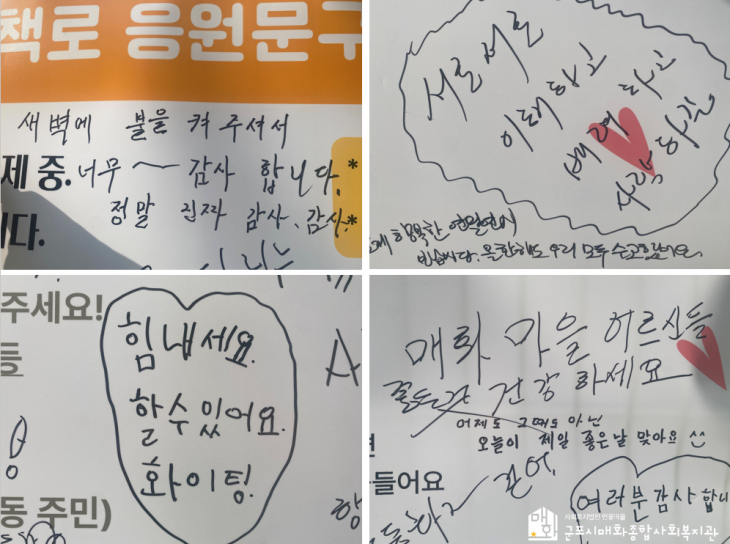 책로 응원문구
새벽에 불을 켜 주셔서
제 중. 너무 ~ 감사 합니다.*
정말 진짜 감사, 감사.*
니다.
서로서로
이해하고
배려하고
사랑하길
행복한 연말연시
빕습니다. 올한해도 우리 모두 수고했어요.
주세요!
등
힘내세요.
할수 있어요.
화이팅.
동 주민)
매화 마을 어르신들
건강 하세요
어제도 그때도 아닌
오늘이 제일 좋은날 맞아요
들어요
걷어.
여러분 감사 합니
매화
사회복지법인 연꽃마을
군포시매화종합사회복지관